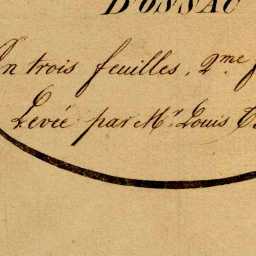 D'ONSAC
En trois feuilles, 2.me f
Levée par Mr. Louis